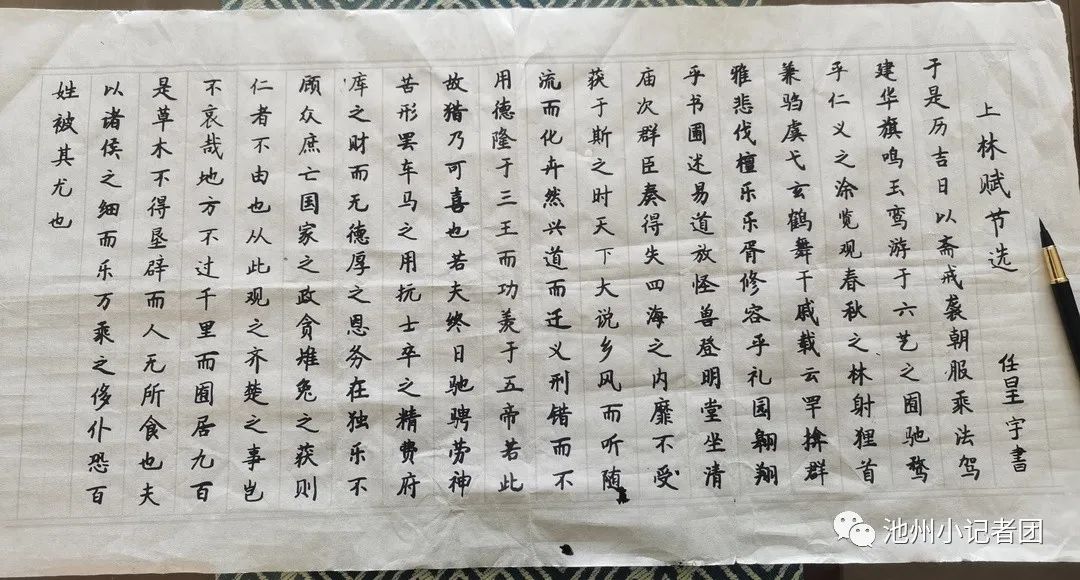 上林赋节选
任呈宇書
于是历吉日以斋戒袭朝服乘法驾
建华旗鸣玉鸾游于六艺之囿驰骛
乎仁义之涂览观春秋之林射狸首
兼驺虞弋玄鹤舞干戚载云罕揜群
雅悲伐檀乐乐胥修容乎礼园翱翔
乎书圃述易道放怪兽登明堂坐清
庙次群臣奏得失四海之内靡不受
获于斯之时天下大说乡风而听随
流而化卉然兴道而迁义刑错而不
用德隆于三王而功羡于五帝若此
故猎乃可喜也若夫终日驰骋劳神
苦形罢车马之用抗士卒之精费府
库之财而无德厚之恩务在独乐不
顾众庶亡国家之政贪雉兔之获则
仁者不由也从此观之齐楚之事岂
不哀哉地方不过千里而囿居九百
是草木不得垦辟而人无所食也夫
以诸侯之细而乐万乘之侈仆恐百
姓被其尤也
池州小记者团